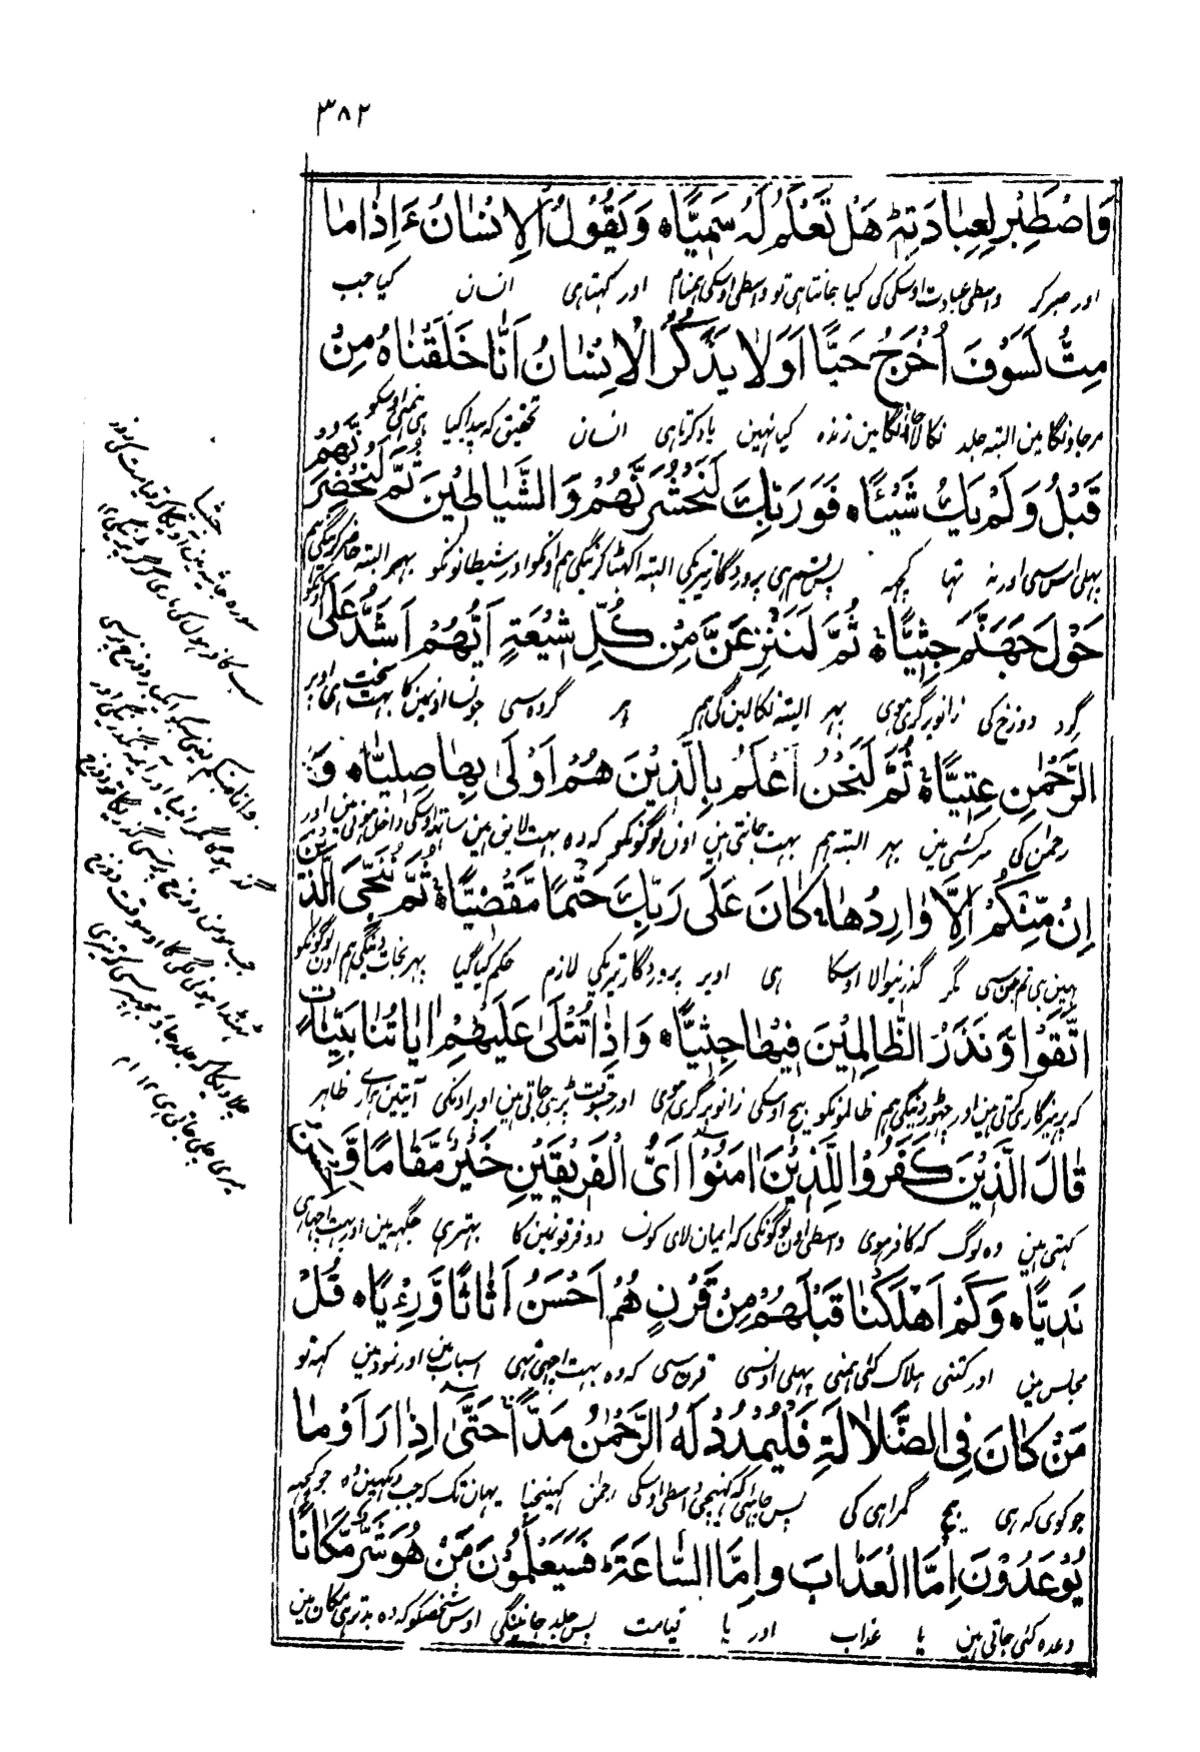 ٣٨٢
وَاصْطَبِرْ لِعِبَادَتِهٖ هَلْ تَعْلَمُ لَهُ سَمِيًّا ه وَيَقُوْلُ الْاِنْسَانُ ءَاِذَا مَا
اور صبر کر واسطی عبادت اوسکی کی کیا جانتا ہی تو واسطی اوسکی ہمنام اور کہتا ہی انسان کیا جب
مِتُّ لَسَوْفَ اُخْرَجُ حَيًّا اَوَلَا يَذْكُرُ الْاِنْسَانُ اَنَّا خَلَقْنَاهُ مِنْ
مر جاونگا مین البتہ جلد نکالا جاونگا مین زندہ کیا نہین یاد کرتا ہی انسان تحقیق کہ پیدا کیا ہی ہمنی اوسکو
قَبْلُ وَلَمْ يَكُ شَيْئًا ه فَوَرَبِّكَ لَنَحْشُرَنَّهُمْ وَالشَّيَاطِيْنَ ثُمَّ لَنُحْضِرَنَّهُمْ
پہلی اس سی اور نہ تہا کچہہ پس قسم ہی پروردگار تیری کی البتہ اکہٹا کرینگی ہم اونکو اور شیطانونکو پہر البتہ حاضر کرینگی ہم اونکو
حَوْلَ جَهَنَّمَ جِثِيًّا ه ثُمَّ لَنَنْزِعَنَّ مِنْ كُلِّ شِيْعَةٍ اَيُّهُمْ اَشَدُّ عَلَى
گرد دوزخ کی زانو پر گری ہوی پہر البتہ نکالین گی ہم ہر گروہ سی جونسا اونمین کا بہت سخت ہی اوپر
الرَّحْمٰنِ عِتِيًّا ه ثُمَّ لَنَحْنُ اَعْلَمُ بِالَّذِيْنَ هُمْ اَوْلٰى بِهَا صِلِيًّا ه وَ
رحمن کی سرکشی مین پہر البتہ ہم بہت جانتی ہین اون لوگونکو کہ وہ بہت لایق ہین ساتہہ اوسکی داخل ہونی مین اور
اِنْ مِّنْكُمْ اِلَّا وَارِدُهَا ه كَانَ عَلٰى رَبِّكَ حَتْمًا مَّقْضِيًّا ه ثُمَّ نُنَجِّى الَّذِيْنَ
نہین ہی تم مین سی مگر گذرنیوالا اوسکا ہی اوپر پروردگار تیری کی لازم حکم کیا گیا پہر نجات دینگی ہم اون لوگونکو
اتَّقَوْا وَّنَذَرُ الظَّالِمِيْنَ فِيْهَا جِثِيًّا ه وَاِذَا تُتْلٰى عَلَيْهِمْ اٰيَاتُنَا بَيِّنَاتٍ
کہ پرہیزگاری کرتی ہین اور چہوڑ دینگی ہم ظالمونکو بیچ اوسکی زانو پر گری ہوی اور جسوقت پڑہی جاتی ہین اوپر اونکی آیتین ہماری ظاہر
قَالَ الَّذِيْنَ كَفَرُوْا لِلَّذِيْنَ اٰمَنُوْا اَىُّ الْفَرِيْقَيْنِ خَيْرٌ مَّقَامًا وَّاَحْسَنُ
کہتی ہین وہ لوگ کہ کافر ہوی واسطی اون لوگونکی کہ ایمان لای کون دو فرقونمین کا بہتر ہی جگہہ مین اور بہت اچہا ہی
نَدِيًّا ه وَكَمْ اَهْلَكْنَا قَبْلَهُمْ مِنْ قَرْنٍ هُمْ اَحْسَنُ اَثَاثًا وَّرِءْيًا ه قُلْ
مجلس مین اور کتنی ہلاک کئی ہمنی پہلی اونسی قرن سی کہ وہ بہت اچہی تہی اسباب مین اور نمود مین کہہ تو
مَنْ كَانَ فِى الضَّلَالَةِ فَلْيَمْدُدْ لَهُ الرَّحْمٰنُ مَدًّا حَتّٰى اِذَا رَاَوْا مَا
جو کوی کہ ہی بیچ گمراہی کی پس چاہئی کہ کہینچی واسطی اوسکی رحمن کہینچنا یہان تک کہ جب دیکہین وہ جو کچہہ
يُوْعَدُوْنَ اِمَّا الْعَذَابَ وَاِمَّا السَّاعَةَ فَسَيَعْلَمُوْنَ مَنْ هُوَ شَرٌّ مَّكَانًا
وعدہ کئی جاتی ہین یا عذاب اور یا قیامت پس جلد جانینگی اوس شخصکو کہ وہ بدتر ہی مکان مین
جثیا